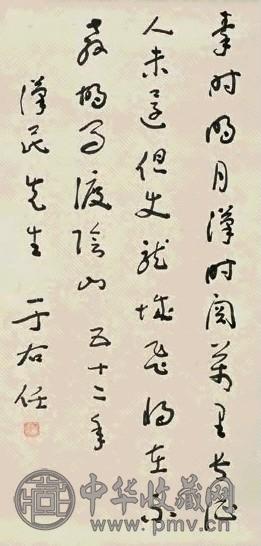 秦時明月漢時關萬里長征
人未還但使龍城飛將在不
教胡馬渡陰山 五十二年
漢民先生 于右任
中华收藏网
www.pmv.cn